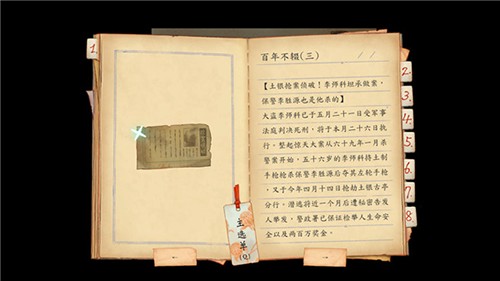 1
百年不赖(三)
【土银抢案侦破!李师科坦承做案,
保警李胜源也是他杀的】
大盗李师科已于五月二十一日受军事
法庭判决死刑,将于本月二十六日执
行。整起惊天大案从六十九年一月杀
警案开始,五十六岁的李师科持土制
手枪枪杀保警李胜源后夺其左轮手
枪,又于今年四月十四日抢劫土银古亭
分行。潜逃将近一个月后遭秘密告发
人举发,警政署已保证检举人生命安
全以及两百万奖金。
2.
3.
4.
5.
6.
7.
8
主选单
(Q)